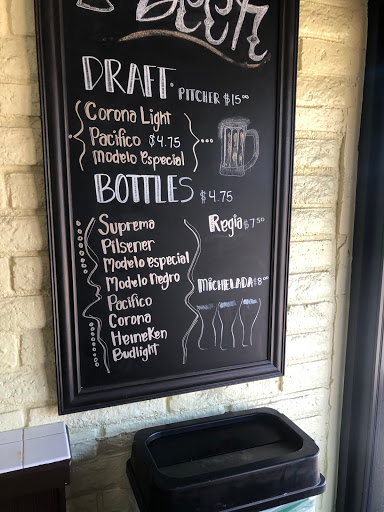 BEER
DRAFT. PITCHER $15.00
Corona Light
Pacifico $4.75
Modelo Especial
BOTTLES $4.75
Suprema
Pilsener
Modelo especial
Modelo negro
Pacifico
Corona
Heineken
Budlight
Regia $7.50
MICHELADA $8.00